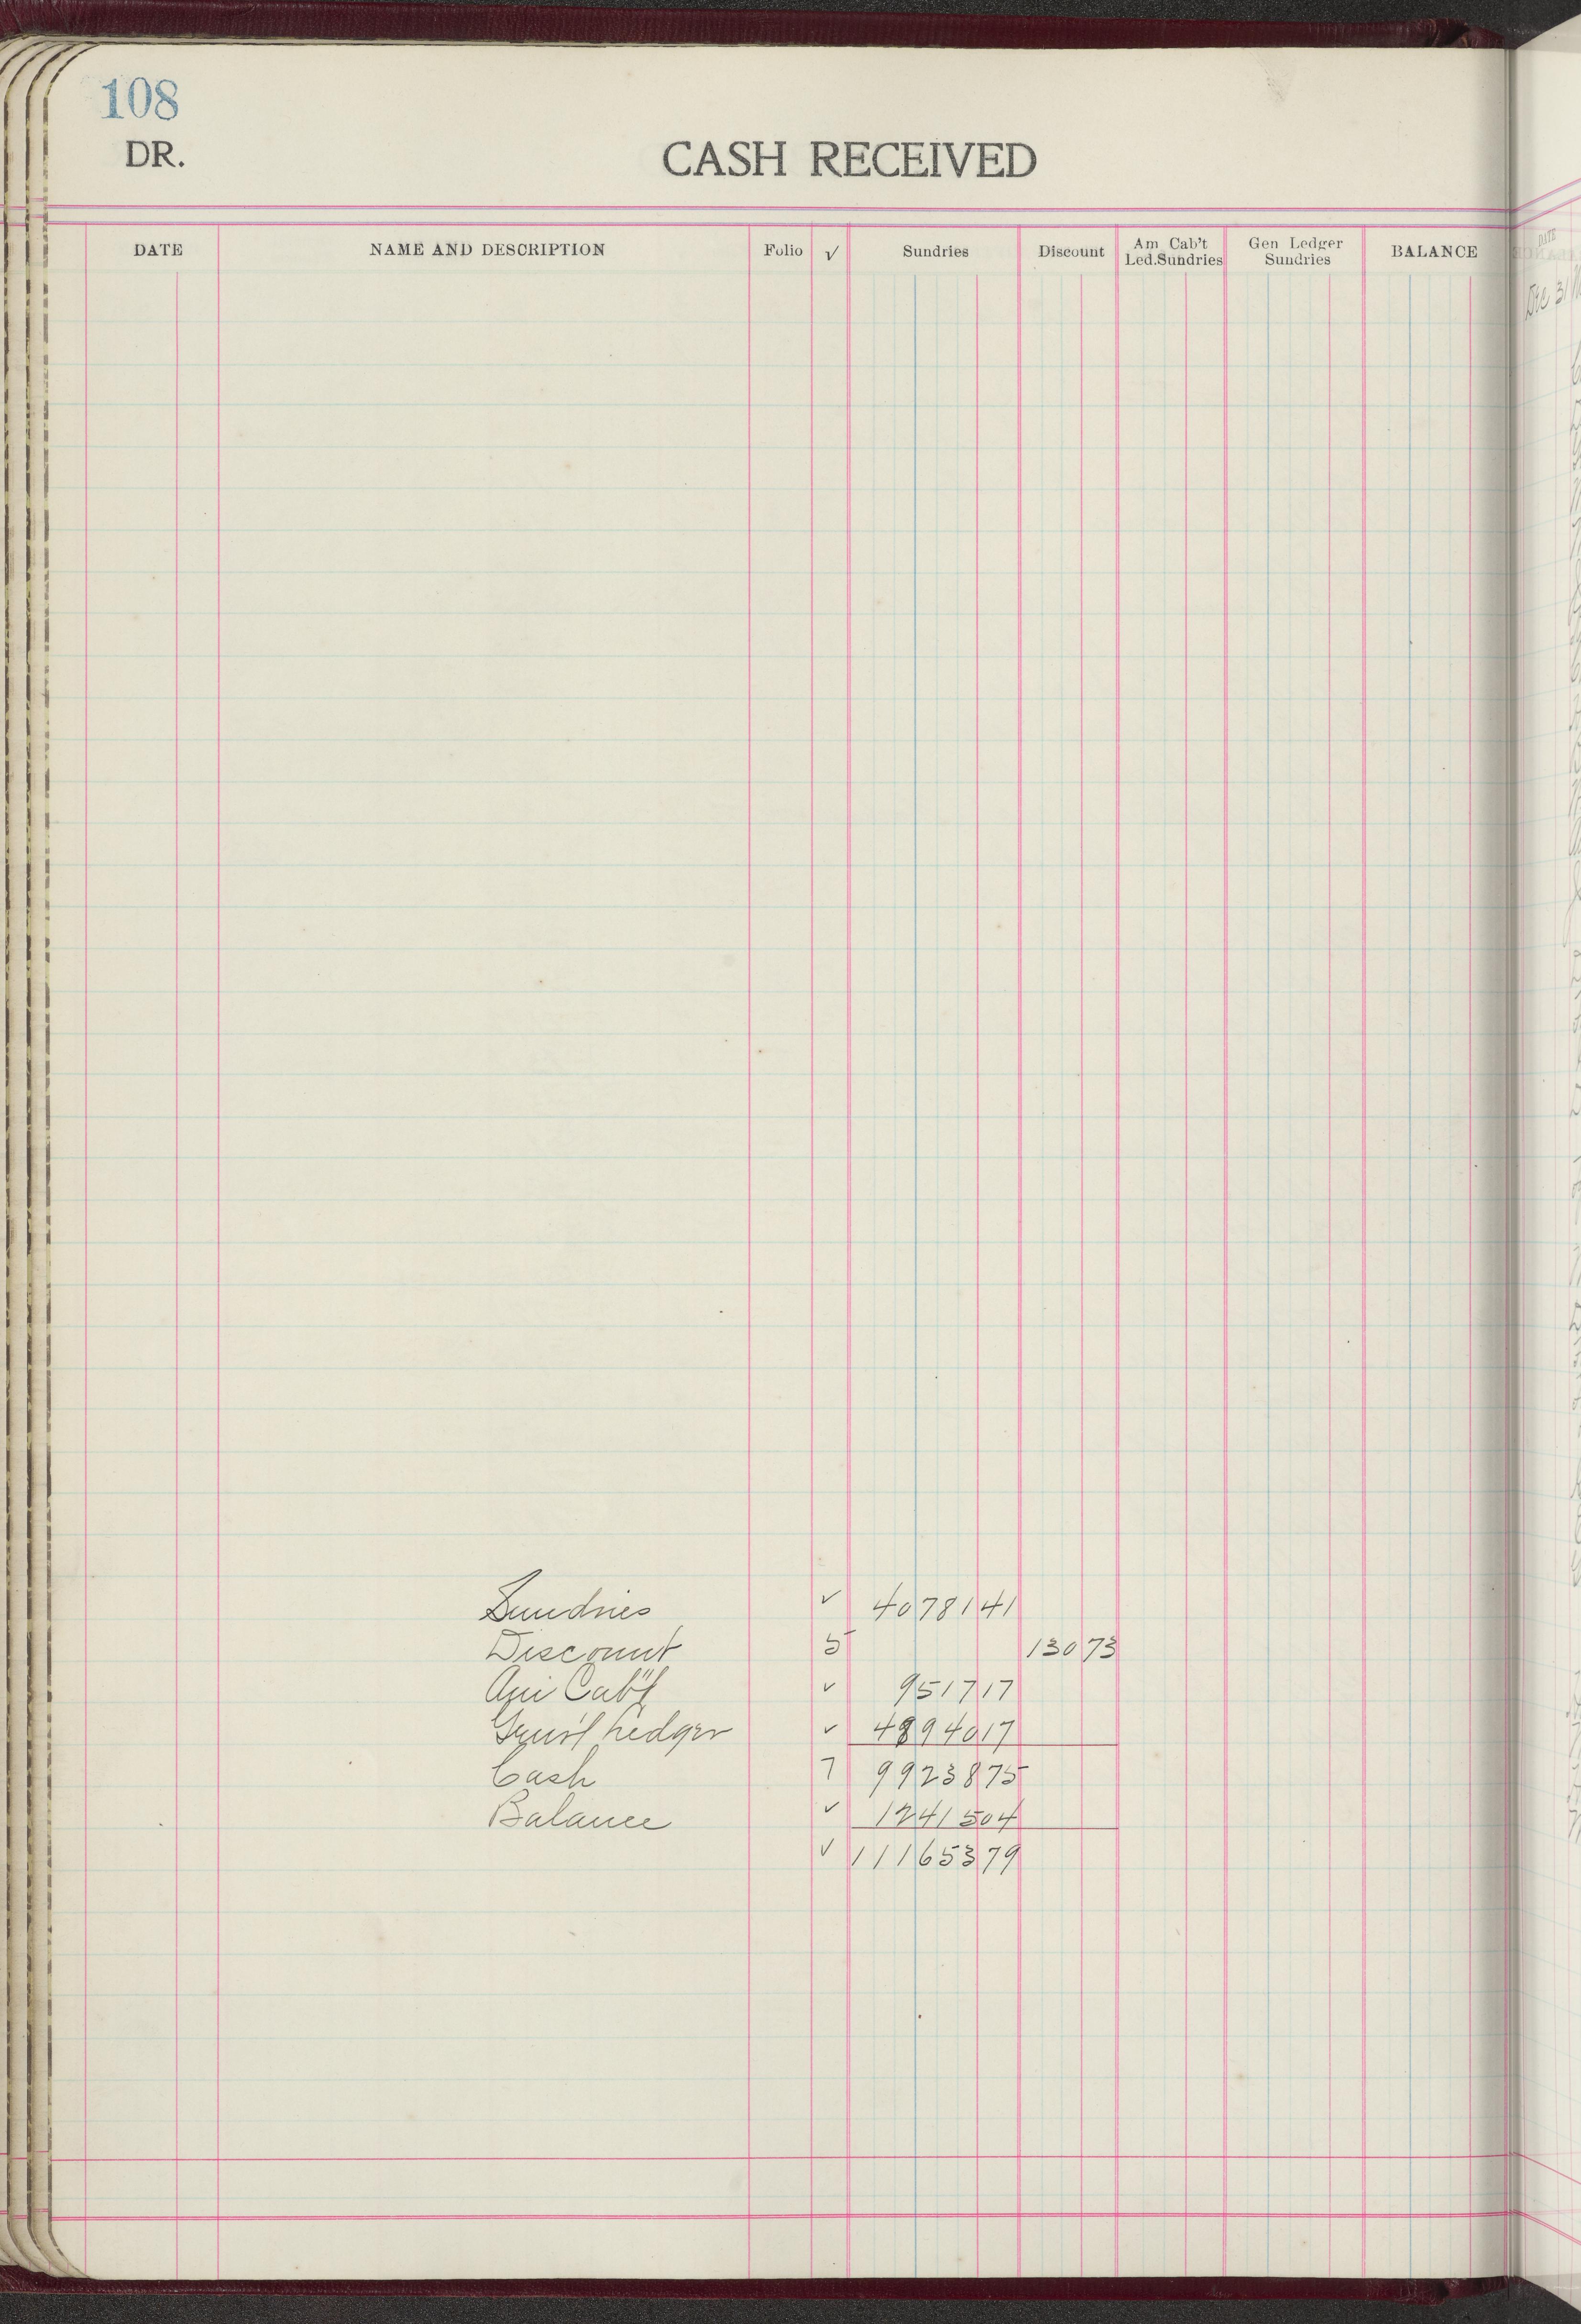 108
DR.
CASH RECEIVED
DATE NAME AND DESCRIPTION Folio √ Sundries Discount Am Cab't Led.Sundries Gen Ledger Sundries BALANCE
Sundries ✓ 40781 41
Discount 5 130 73
Am Cab't ✓ 9517 17
Gen'l Ledger ✓ 48940 17
Cash 7 99238 75
Balance ✓ 12415 04
✓ 111653 79
Dec 31